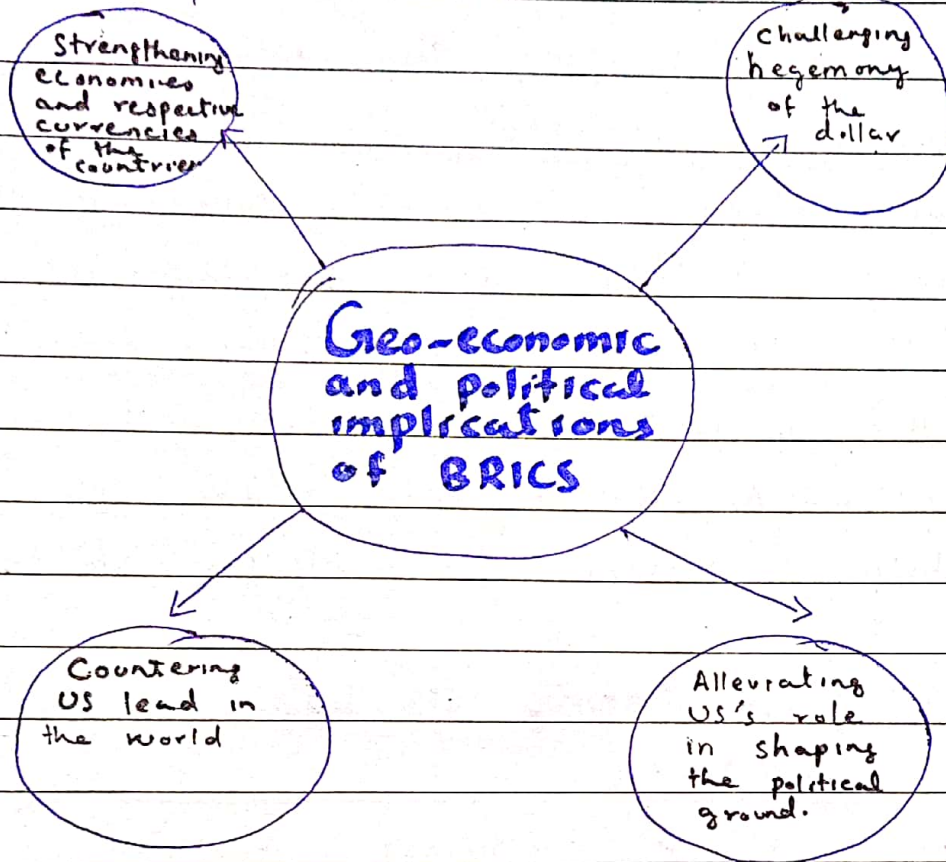 Strengthening
economies
and respective
currencies
of the
countries
challenging
hegemony
of the
dollar
Geo-economic
and political
implications
of BRICS
Countering
US lead in
the world
Alleviating
US's role
in shaping
the political
ground.